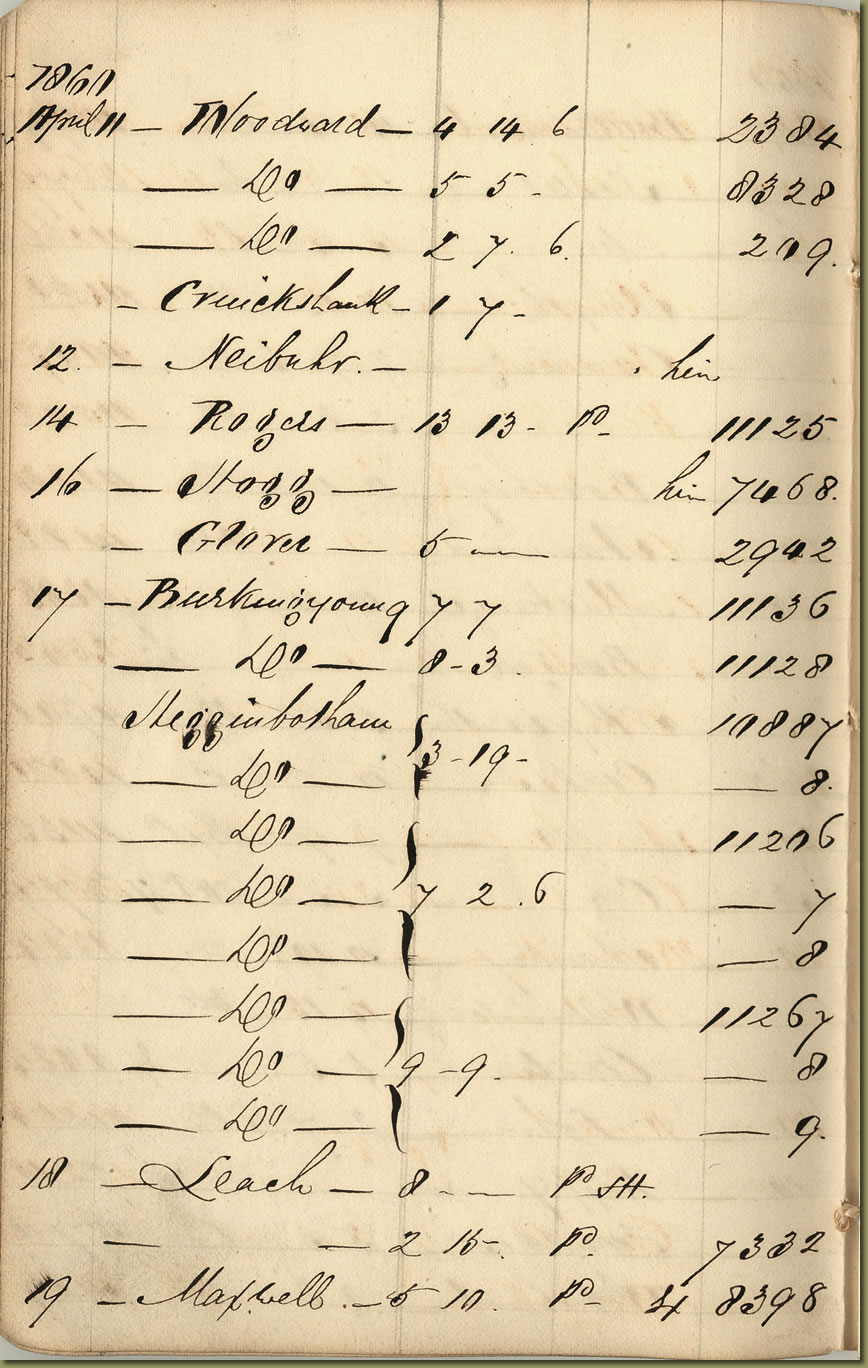 1860
April 11 — Woodward — 4 14 6 2384
— Do — 5 5 - 8328
— Do — 2 7. 6. 209.
— Cruickshank — 1 7 -
12. — Neibuhr. —
14 — Rogers — 13 13 - Pd - 11125
16 — Hogg — 7468.
— Glover — 5 — — 2942
17 — Burkinyoung 7 7 11136
— Do — 8 - 3. 11128
Hegginbotham 10887
3 - 19 -
— Do — — 8.
— Do — 11206
— Do — 7 2 . 6 — 7
— Do — — 8
— Do — 11267
— Do — 9 - 9. — 8
— Do — — 9.
18 — Leach — 8 - — Pd
— — 2 15 -. Pd. 7332
19 — Maxwell . — 5 10. Pd - 8398